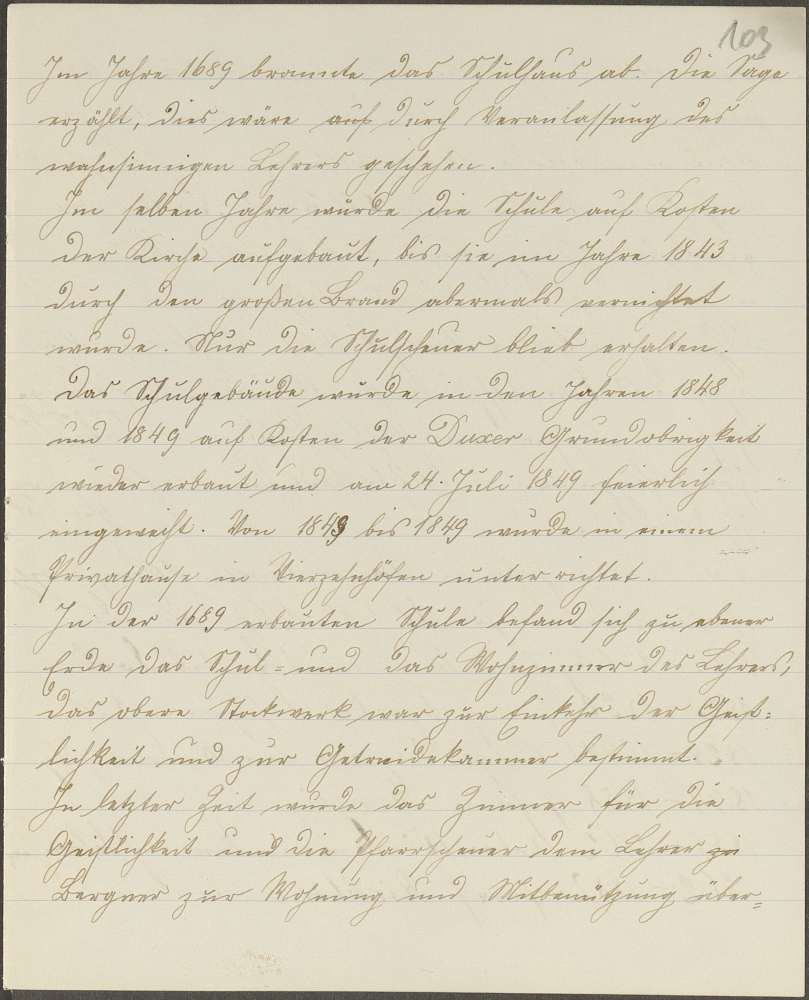 103
Im Jahre 1689 brannte das Schulhaus ab. Die Sage
erzählt, dies wäre auf durch Veranlassung des
wahnsinnigen Lehrers geschehen.
Im selben Jahre wurde die Schule auf Kosten
der Kirche aufgebaut, bis sie im Jahre 1843
durch den großen Brand abermals vernichtet
wurde. Nur die Schulscheuer blieb erhalten.
Das Schulgebäude wurde in den Jahren 1848
und 1849 auf Kosten der Duxer Grundobrigkeit
wieder erbaut und am 24. Juli 1849 feierlich
eingeweiht. Von 1843 bis 1849 wurde in einem
Privathause in Vierzehnhöfen unterrichtet.
In der 1689 erbauten Schule befand sich zu ebener
Erde das Schul- und das Wohnzimmer des Lehrers,
das obere Stockwerk war zur Einkehr der Geist-
lichkeit und zur Getreidekammer bestimmt.
In letzter Zeit wurde das Zimmer für die
Geistlichkeit und die Pfarrscheuer dem Lehrer zu
Bergner zur Wohnung und Mitbenützung über-